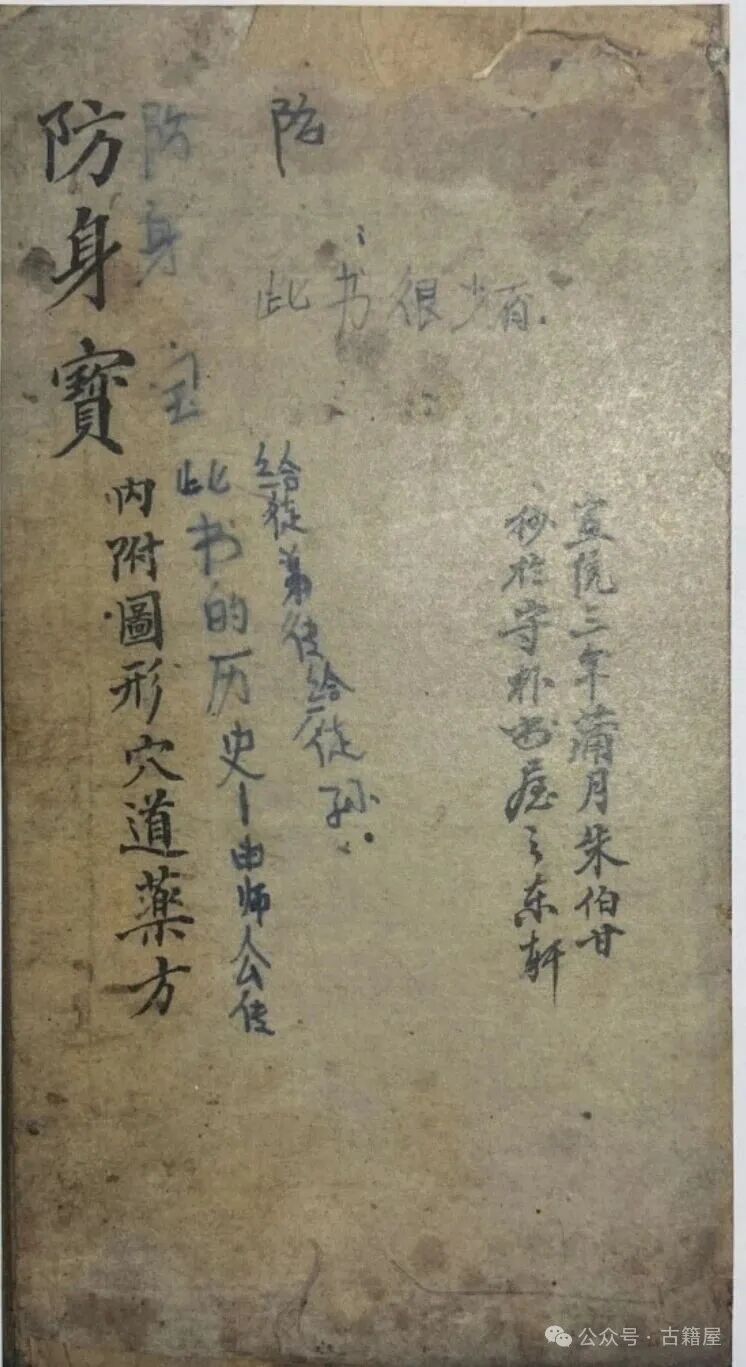 防身寶
內附圖形穴道薬方
防身宝
防
此书很少有.
此书的历史-由师公传
给徒弟传给徒孙..
宣统三年蒲月朱伯甘
抄於守朴书屋之东轩
公众号·古籍屋